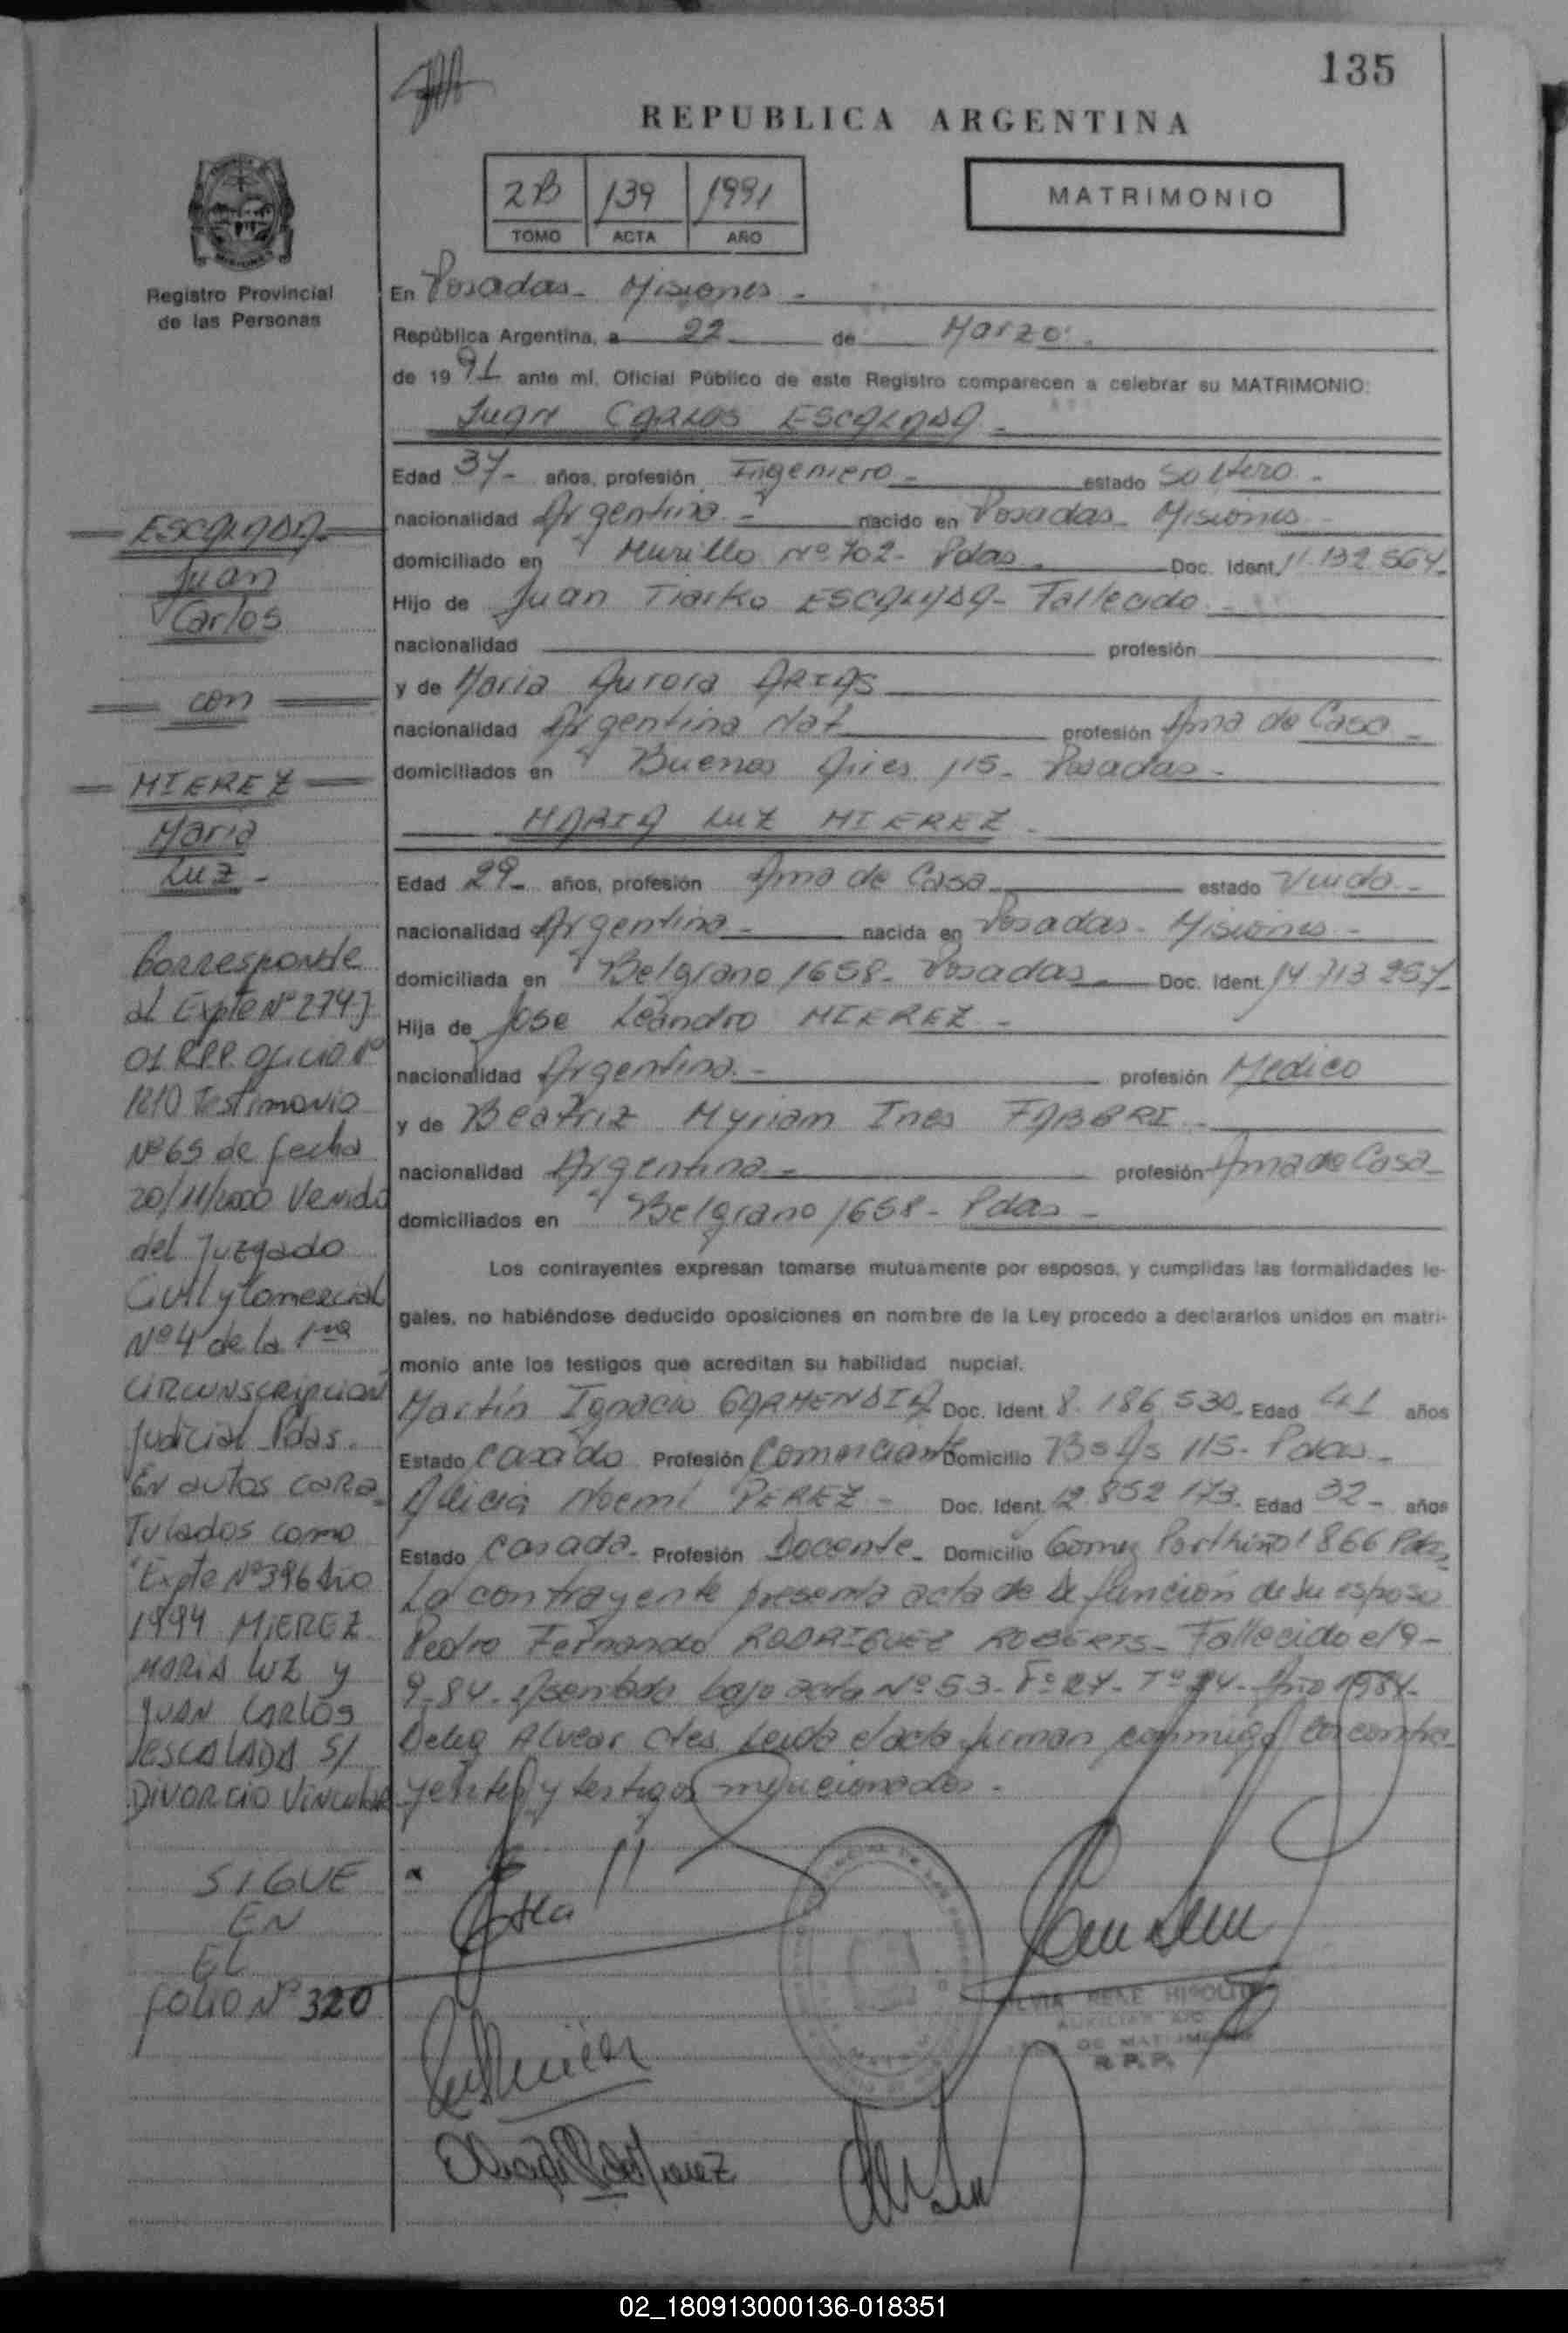 135
REPUBLICA ARGENTINA
2B 139 1991
TOMO ACTA AÑO
MATRIMONIO
Registro Provincial
de las Personas
En Posadas - Misiones -
República Argentina, a 22 de Marzo
de 1991 ante mí, Oficial Público de este Registro comparecen a celebrar su MATRIMONIO:
Juan Carlos ESCALADA -
Edad 37- años, profesión Ingeniero - estado Soltero -
nacionalidad Argentina - nacido en Posadas - Misiones -
domiciliado en Murillo Nº 702 - Pdas - Doc. Ident. 11.132.564-
Hijo de Juan ESCALADA - Fallecido -
nacionalidad profesión
y de Maria Aurora ARIAS
nacionalidad Argentina Nat profesión Ama de Casa -
domiciliados en Buenos Aires 115 - Posadas -
MARIA LUZ MIEREZ -
Edad 29- años, profesión Ama de Casa estado Viuda -
nacionalidad Argentina - nacida en Posadas - Misiones -
domiciliada en Belgrano 1658 - Posadas - Doc. Ident. 14.713.257-
Hija de Jose Leandro MIEREZ -
nacionalidad Argentina - profesión Medico
y de Beatriz Myriam Ines FABBRI -
nacionalidad Argentina - profesión Ama de Casa
domiciliados en Belgrano 1658 - Pdas -
Los contrayentes expresan tomarse mutuamente por esposos, y cumplidas las formalidades le-
gales, no habiéndose deducido oposiciones en nombre de la Ley procedo a declararlos unidos en matri-
monio ante los testigos que acreditan su habilidad nupcial.
Martín Ignacio GARMENDIA Doc. Ident. 8.186.530- Edad 41 años
Estado Casado Profesión Comerciante Domicilio Bs As 115 - Pdas -
Alicia Noemí PEREZ - Doc. Ident. 12.852.173- Edad 32- años
Estado Casada - Profesión Docente - Domicilio Gomez 1866 Pdas
La contrayente presenta acta de defunción de su esposo
Pedro Fernando RODRIGUEZ ROBERTS - Fallecido el 9-
9-84. Asentada bajo acta Nº 53 - Fº 27 - Tº - Año 1984-
Deleg Alvear Ctes. Leida el acta firman conmigo los contra
yentes y testigos mencionados -
ESCALADA
Juan
Carlos
con
MIEREZ
Maria
Luz -
Corresponde
al Expte Nº 2747
01 R.P.P. Oficio Nº
1210 Testimonio
Nº 65 de fecha
20/11/2000 Venido
del Juzgado
Civil y Comercial
Nº 4 de la 1ra
Circunscripcion
Judicial Pdas.
En autos cara
Tulados como
"Expte Nº 396 Año
1994 MIEREZ
MARIA LUZ y
JUAN CARLOS
ESCALADA S/
DIVORCIO VINCULAR
SIGUE
EN
EL
FOLIO Nº 320
RENE HIPOLITO
AUXILIAR
DE MATRIMONIOS
R.P.P.
02_180913000136-018351